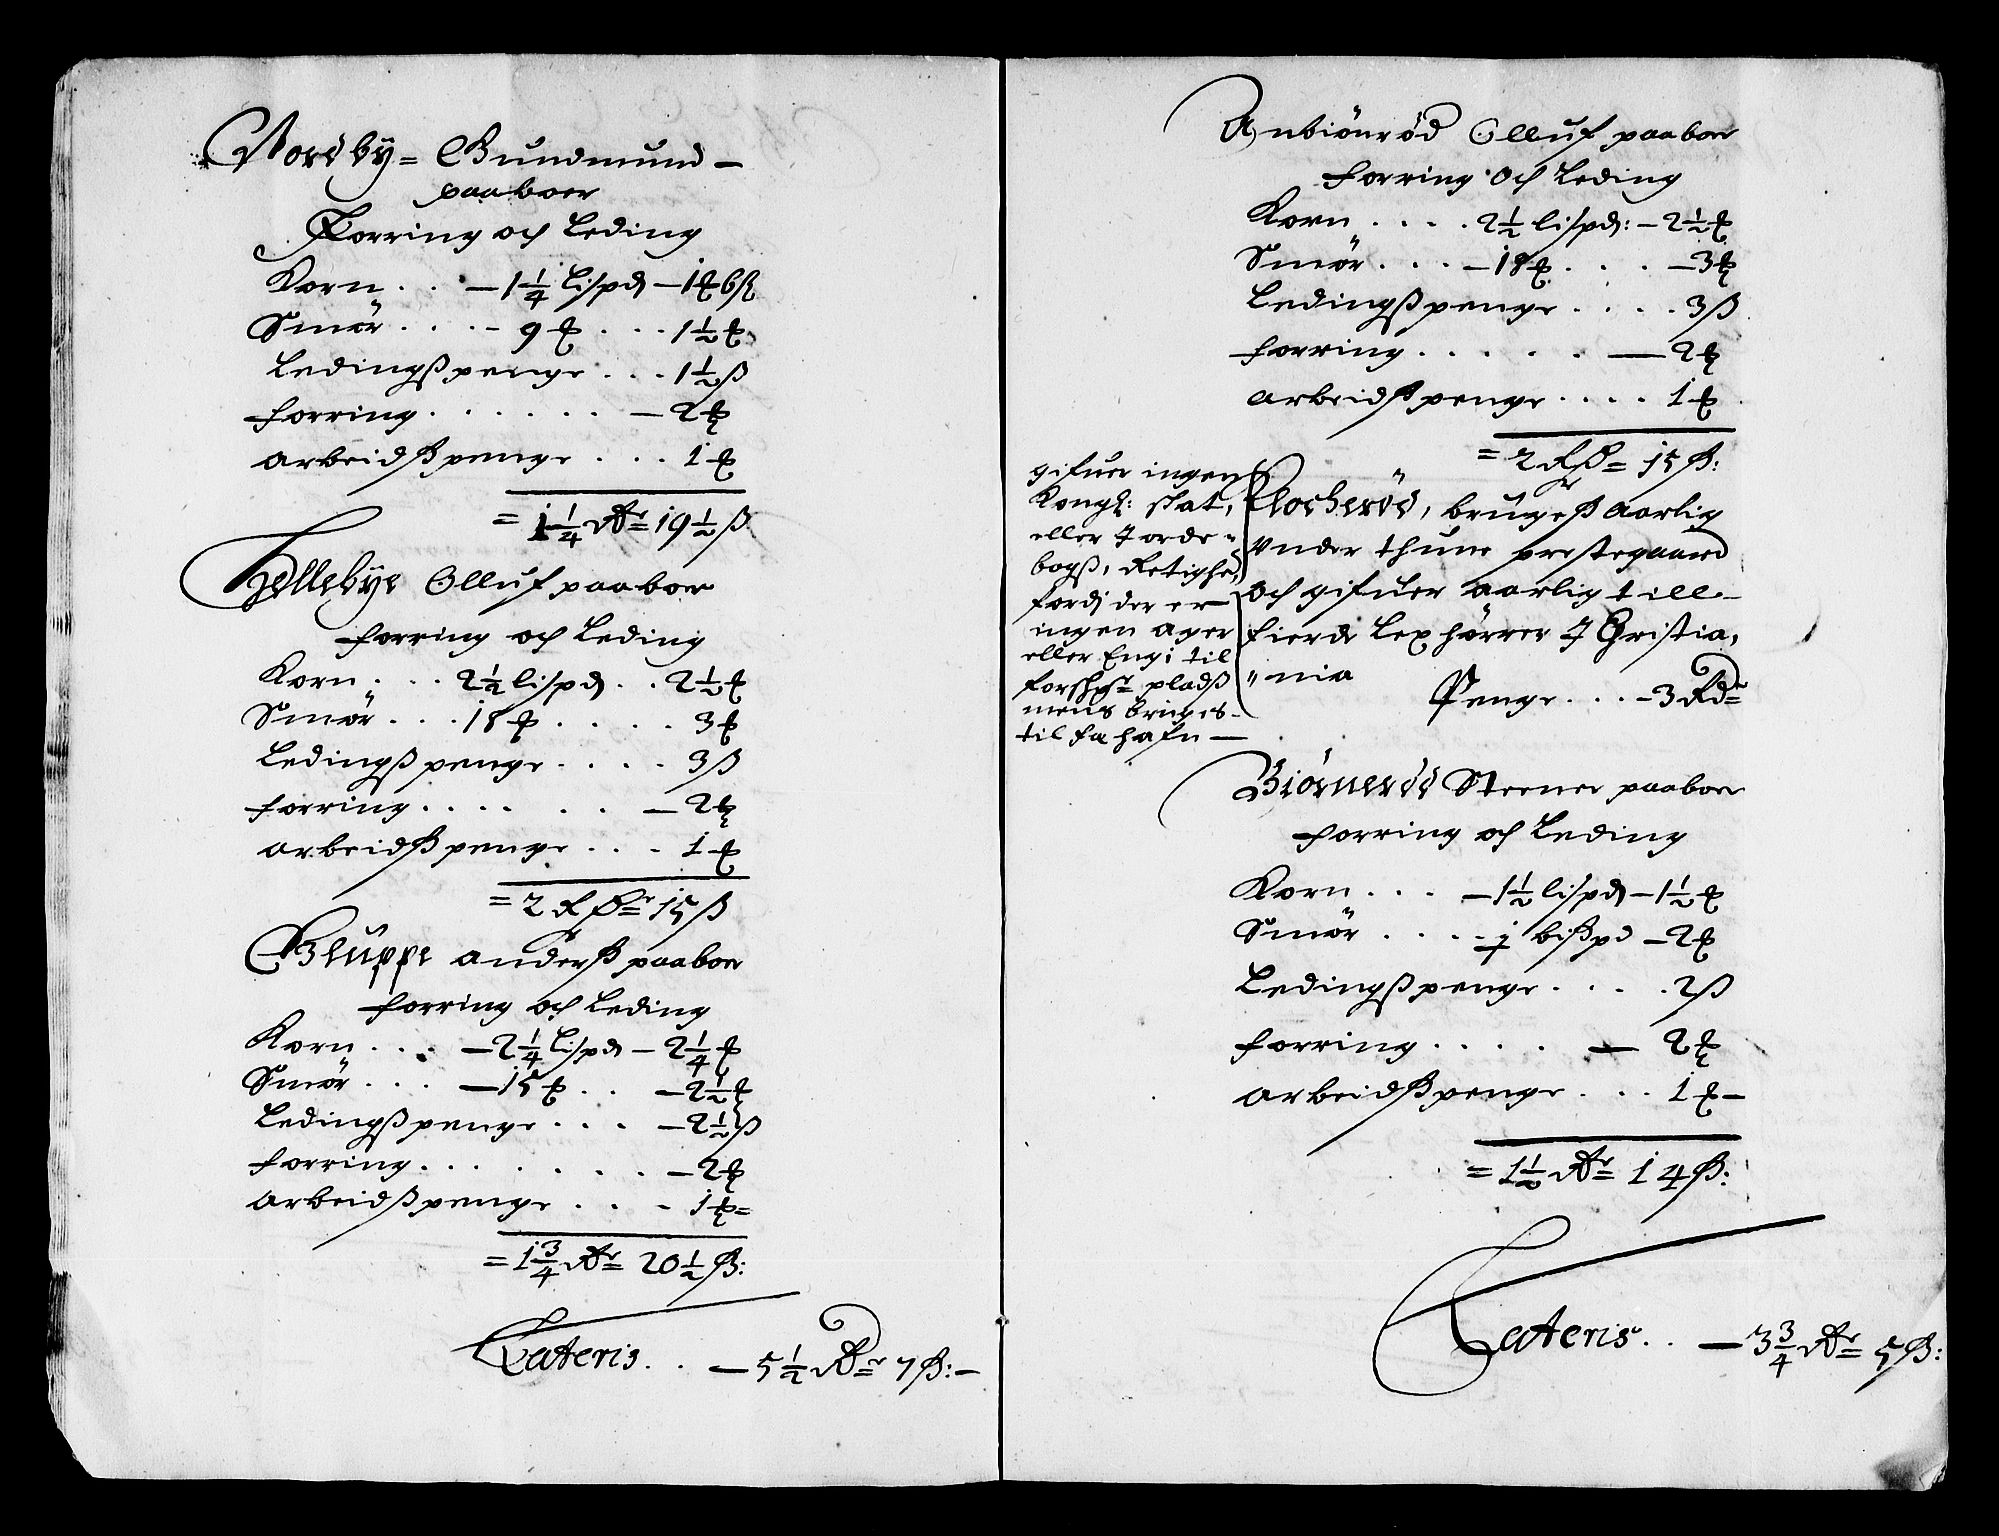 Nordbÿ = Gundmund –
paaboer
Forring och Leding
Korn . . – 1 1/4 Lispd – 1 ℔ 6 ß
Smör . . . – 9 ℔ . . . 1 1/2 ℔
Ledingßpenge . . . 1 1/2 ß
forring . . . . . . – 2 ℔
arbeidßpenge . . . 1 ℔
= 1 1/4 Rdr 19 1/2 ß
Hellebÿe Olluf paaboer
forring och Leding
Korn . . . 2 1/2 lispd . . 2 1/2 ℔
Smör . . . 18 ℔ . . . . . 3 ℔
Ledingßpenge . . . . 3 ß
forring . . . . . . – 2 ℔
arbeidßpenge . . . 1 ℔
= 2 Rdr 15 ß
Gluppe anderß paaboer
forring och Leding
Korn . . . – 2 1/4 Lispd – 2 1/4 ℔
Smör . . . – 15 ℔ . . – 2 1/2 ℔
Ledingßpenge . . . – 2 1/2 ß
forring . . . . . . . – 2 ℔
arbeidßpenge . . . 1 ℔ =
= 1 3/4 Rdr 20 1/2 ß:
Lateris . . – 5 1/2 Rdr 7 ß: –
Anbiönröd Olluf paaboer
forring och Leding
Korn . . . . 2 1/2 lispd: – 2 1/2 ℔
Smör . . . – 18 ℔ . . . – 3 ℔
Ledingßpenge . . . . 3 ß
forring . . . . . . — 2 ℔
arbeidßpenge . . . . 1 ℔
= 2 Rdr = 15 ß:
gifuer ingen
Kongl: skat,
eller Jorde =
bogß, Retighed,
fordj der er
ingen ager
eller Engi til
forschr pladß
mens bringes
til fahafn —
Klocheröd, brugeß aarlig
under thune prestegaard
och gifuer aarlig till
fierde Lex hörrer I Christia,
" nia
Penge . . . – 3 Rdr
Biörneröd Steener paaboer
forring och Leding
Korn . . . – 1 1/2 lispd – 1 1/2 ℔
Smör . . . . – 1 bißpd – 2 ℔
Ledingßpenge . . . . 2 ß
forring . . . . — 2 ℔
arbeidßpenge . . . 1 ℔ –
= 1 1/2 Rdr 14 ß:
Lateris . . – 3 3/4 Rdr 5 ß: